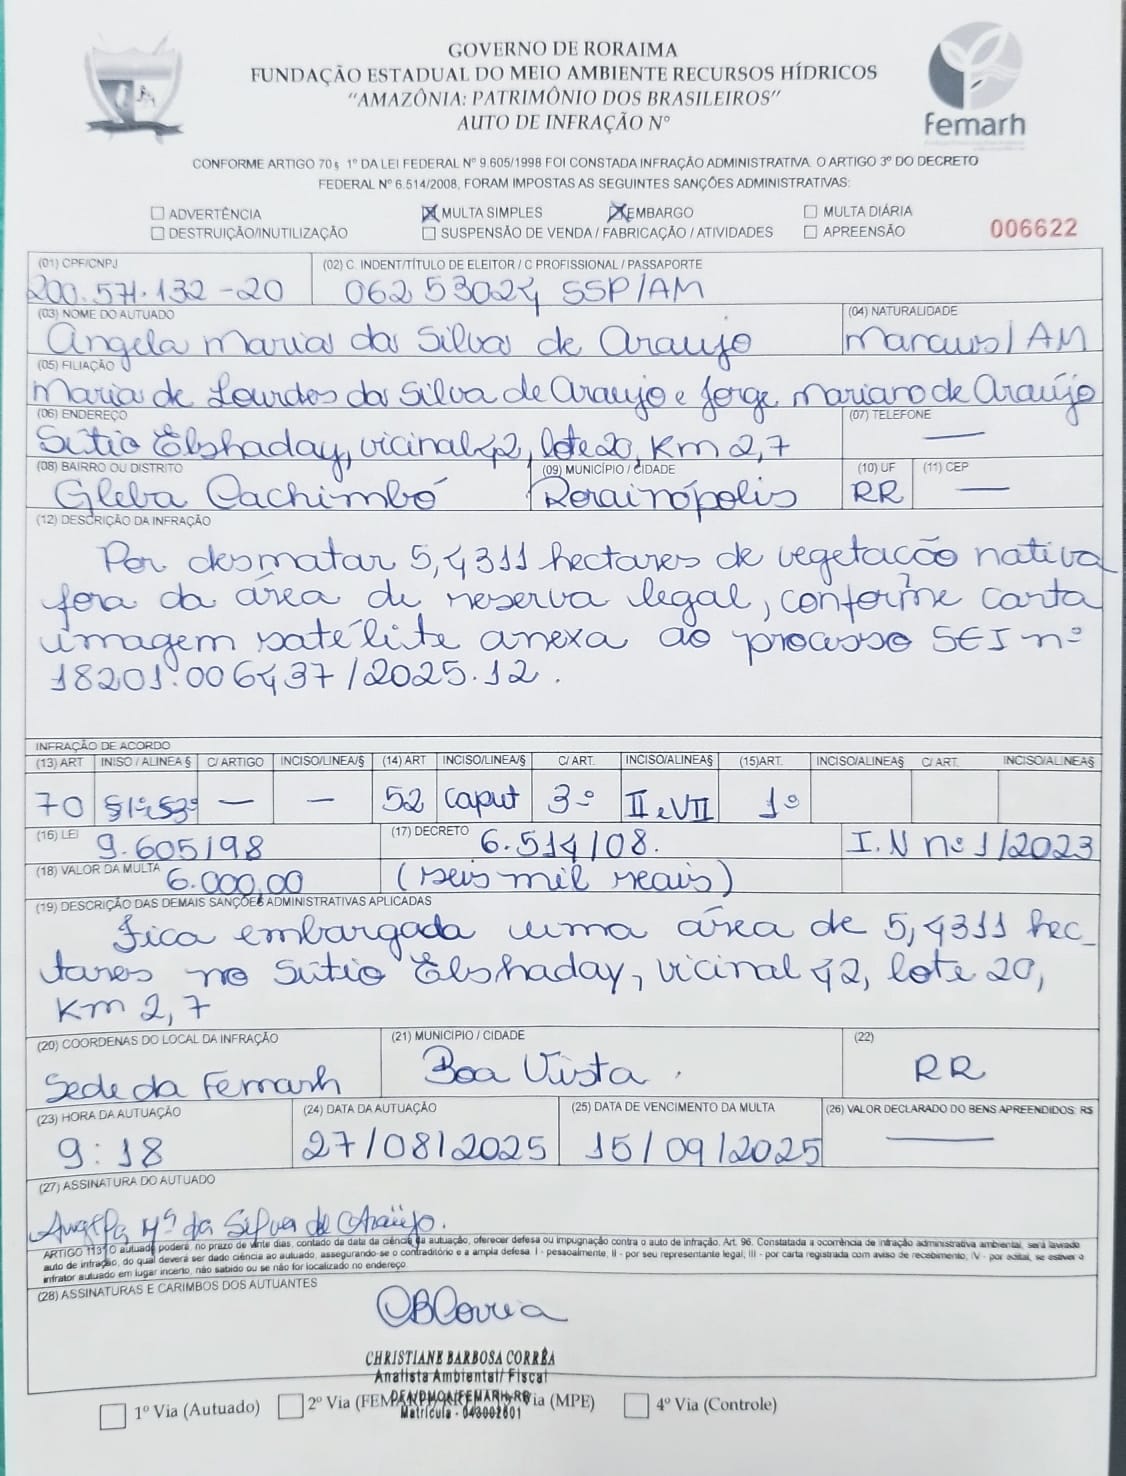 GOVERNO DE RORAIMA
FUNDAÇÃO ESTADUAL DO MEIO AMBIENTE RECURSOS HÍDRICOS
“AMAZÔNIA: PATRIMÔNIO DOS BRASILEIROS”
AUTO DE INFRAÇÃO Nº
Femarh
CONFORME ARTIGO 70 § 1º DA LEI FEDERAL Nº 9.605/1998 FOI CONSTADA INFRAÇÃO ADMINISTRATIVA. O ARTIGO 3º DO DECRETO
FEDERAL Nº 6.514/2008, FORAM IMPOSTAS AS SEGUINTES SANÇÕES ADMINISTRATIVAS:
ADVERTÊNCIA MULTA SIMPLES EMBARGO MULTA DIÁRIA
DESTRUIÇÃO/INUTILIZAÇÃO SUSPENSÃO DE VENDA / FABRICAÇÃO / ATIVIDADES APREENSÃO 006622
(01) CPF/CNPJ (02) C. INDENT/TÍTULO DE ELEITOR / C PROFISSIONAL / PASSAPORTE
200.571.132-20 06253024 SSP/AM
(03) NOME DO AUTUADO (04) NATURALIDADE
Angela Maria da Silva de Araujo Manaus/AM
(05) FILIAÇÃO
Maria de Lourdes da Silva de Araujo e Jorge Mariano de Araújo
(06) ENDEREÇO (07) TELEFONE
Sítio Elshaday, vicinal 42, lote 20, Km 2,7 —
(08) BAIRRO OU DISTRITO (09) MUNICÍPIO / CIDADE (10) UF (11) CEP
Gleba Cachimbó Rorainópolis RR —
(12) DESCRIÇÃO DA INFRAÇÃO
Por desmatar 5,4311 hectares de vegetação nativa
fora da área de reserva legal, conforme carta
imagem satélite anexa ao processo SEI nº
18201.006437/2025.12.
INFRAÇÃO DE ACORDO
(13) ART INISO / ALINEA § C/ ARTIGO INCISO/LINEA/§ (14) ART INCISO/LINEA/§ C/ ART. INCISO/ALINEA§ (15)ART. INCISO/ALINEA§ C/ ART. INCISO/ALINEA§
70 §1º,§3º — — 52 caput 3º II e VII 1º
(16) LEI (17) DECRETO
9.605/98 6.514/08. I.N nº 1/2023
(18) VALOR DA MULTA
6.000,00 (seis mil reais)
(19) DESCRIÇÃO DAS DEMAIS SANÇÕES ADMINISTRATIVAS APLICADAS
Fica embargada uma área de 5,4311 hec-
tares no Sítio Elshaday, vicinal 42, lote 20,
Km 2,7
(20) COORDENAS DO LOCAL DA INFRAÇÃO (21) MUNICIPIO / CIDADE (22)
Sede da Femarh Boa Vista. RR
(23) HORA DA AUTUAÇÃO (24) DATA DA AUTUAÇÃO (25) DATA DE VENCIMENTO DA MULTA (26) VALOR DECLARADO DO BENS APREENDIDOS: R$
9:18 27/08/2025 15/09/2025 —
(27) ASSINATURA DO AUTUADO
Angela Mª da Silva de Araújo.
ARTIGO 113 O autuado poderá, no prazo de vinte dias, contado da data da ciência da autuação, oferecer defesa ou impugnação contra o auto de infração. Art. 96. Constatada a ocorrência de infração administrativa ambiental, será lavrado
auto de infração, do qual deverá ser dado ciência ao autuado, assegurando-se o contraditório e a ampla defesa I - pessoalmente, II - por seu representante legal; III - por carta registrada com aviso de recebimento; IV - por edital, se estiver o
infrator autuado em lugar incerto, não sabido ou se não for localizado no endereço.
(28) ASSINATURAS E CARIMBOS DOS AUTUANTES
CBCorrea
CHRISTIANE BARBOSA CORRÊA
Analista Ambiental/ Fiscal
1º Via (Autuado) 2º Via (FEMARH) Via (MPE) 4º Via (Controle)
Matrícula -